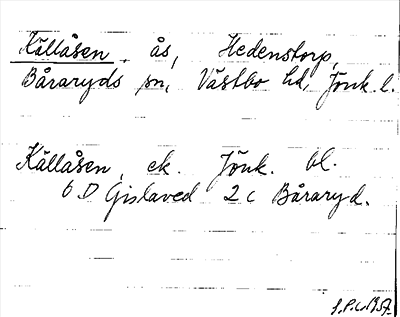 Källåsen, ås, Hedenstorp,
Båraryds sn, Västbo hd, Jönk. l.
Källåsen, ek. Jönk. bl.
6 D Gislaved 2 c Båraryd.
1957.